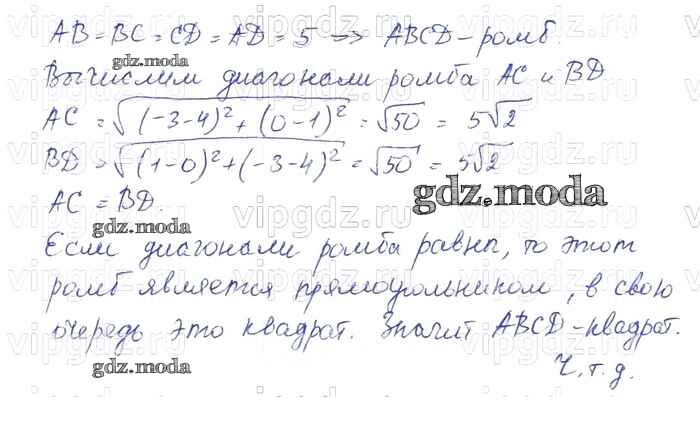 AB = BC = CD = AD = 5 => ABCD – ромб.
Вычислим диагонали ромба AC и BD
AC = √((-3-4)² + (0-1)²) = √50 = 5√2
BD = √((1-0)² + (-3-4)²) = √50 = 5√2
AC = BD.
Если диагонали ромба равны, то этот
ромб является прямоугольником, в свою
очередь это квадрат. Значит ABCD – квадрат.
Ч.т.д.
gdz.moda
gdz.moda
gdz.moda
vipgdz.ru